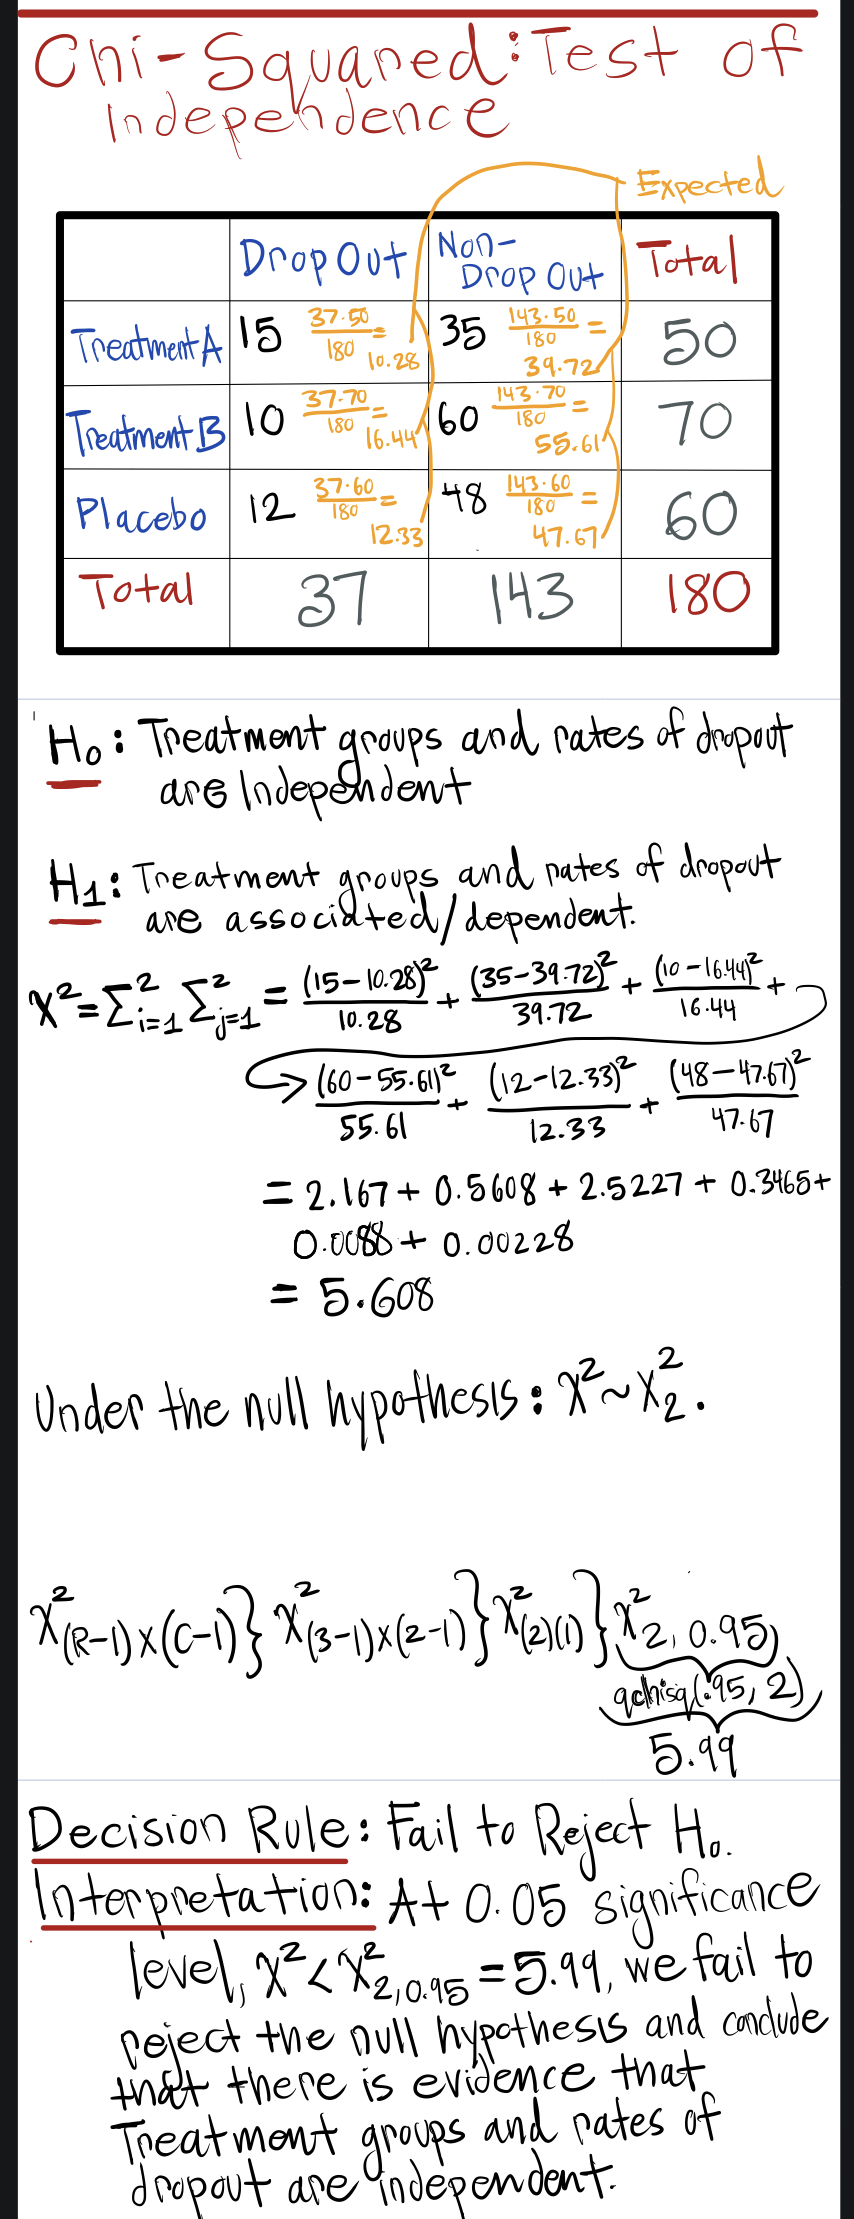 Chi-Squared: Test of
Independence
Expected
Drop Out
Non-
Drop Out
Total
Treatment A
15
37·50
180
=
10.28
35
143·50
180
=
39.72
50
Treatment B
10
37·70
180
=
16.44
60
143·70
180
=
55.61
70
Placebo
12
37·60
180
=
12.33
48
143·60
180
=
47.67
60
Total
37
143
180
H₀: Treatment groups and rates of dropout
are Independent
H₁: Treatment groups and rates of dropout
are associated/dependent.
X² = Σ²ᵢ₌₁ Σ²ⱼ₌₁ = (15-10.28)²/10.28 + (35-39.72)²/39.72 + (10-16.44)²/16.44 +
(60-55.61)²/55.61 + (12-12.33)²/12.33 + (48-47.67)²/47.67
= 2.167 + 0.5608 + 2.5227 + 0.3465 +
0.0088 + 0.00228
= 5.608
Under the null hypothesis: X² ~ X²₂.
X²(R-1)x(C-1) } X²(3-1)x(2-1) } X²(2)(1) } X²2, 0.95
qchisq(.95, 2)
5.99
Decision Rule: Fail to Reject H₀.
Interpretation: At 0.05 significance
level, X² < X²2,0.95 = 5.99, we fail to
reject the null hypothesis and conclude
that there is evidence that
Treatment groups and rates of
dropout are independent.